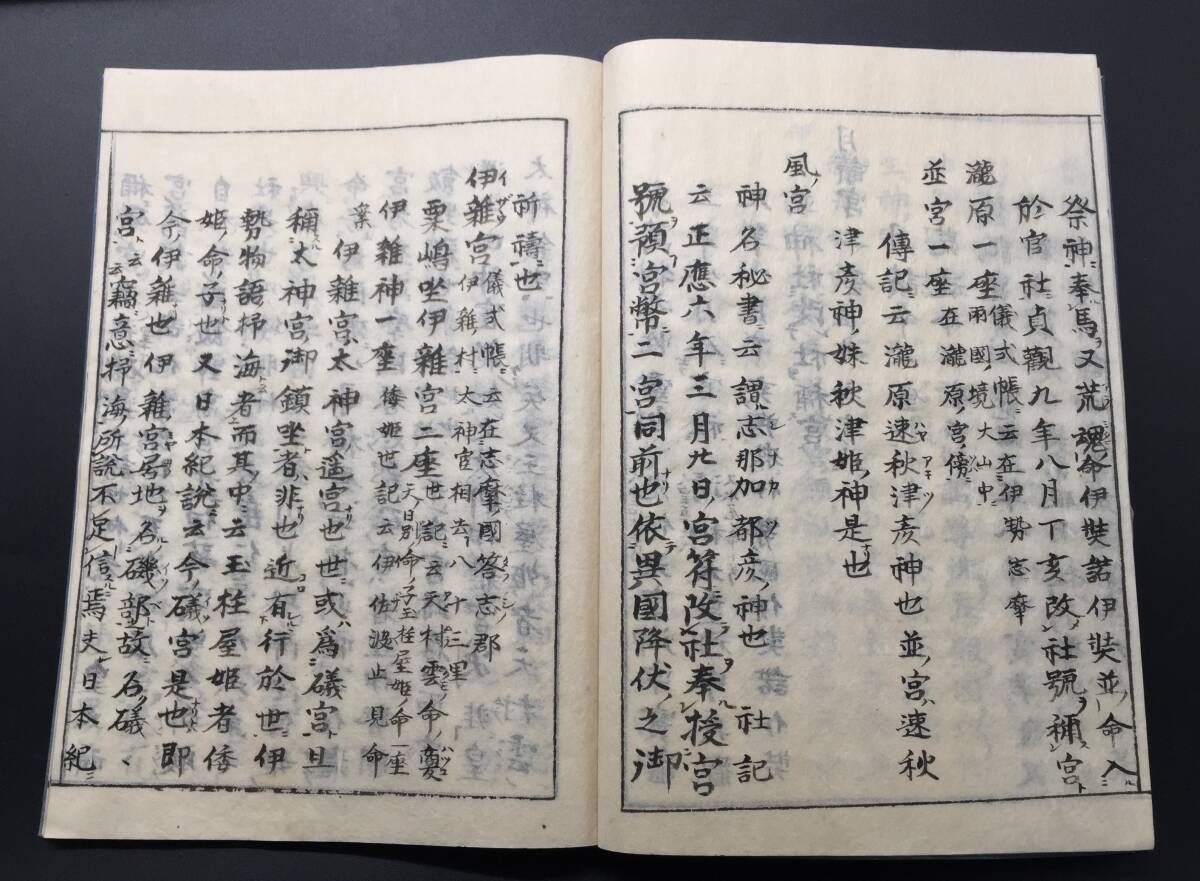 祭神奉馬又荒魂命伊奘諾伊奘並命入
於官社貞觀九年八月丁亥改社號稱宮
瀧原一座儀式帳云在伊勢志摩
兩國境大山中
並宮一座在瀧原宮傍
傳記云瀧原速秋津彦神也並宮速秋
津彦神妹秋津姫神是也
風宮
神名秘書云謂志那加都彦神也 社記
云正應六年三月廿日宮符改社奉授宮
號預宮幣二宮同前也依異國降伏之御
祈禱也
伊雜宮儀式帳云在志摩國答志郡
伊雜村太神宮相去八十三里
粟嶋坐伊雜宮二座世記云天村雲命裔
天日別命子玉柱屋姫命一座
伊雜神一座倭姫世記云伊佐波止見命
業 伊雜宮太神宮遥宮也世或爲礒宮且
稱太神宮御鎮坐者非也近有行於世伊
勢物語掃海者而其中云玉柱屋姫者倭
姫命子也又日本紀説云今礒宮是也即
今伊雜也伊雜宮居地名礒部故名礒
宮云竊意掃海所説不足信焉夫日本紀